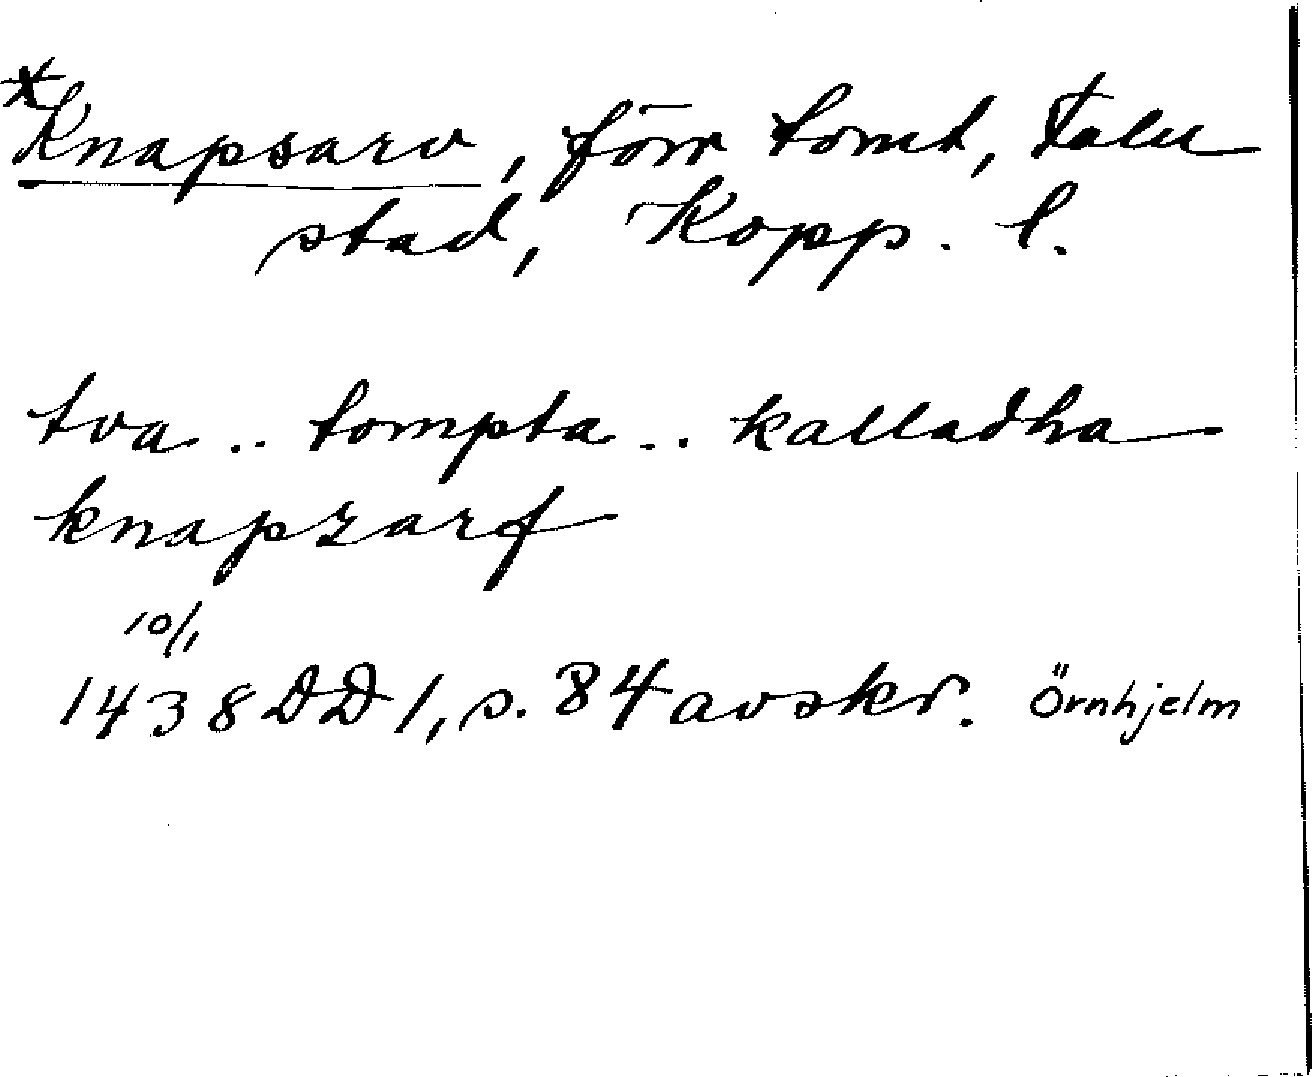 *Knapsarv, förr tomt, Falu
stad, Kopp. l.
tva .. tompta .. kalladha
knapzarf
10/1
1438 DD 1, s. 84 avskr. Örnhjelm